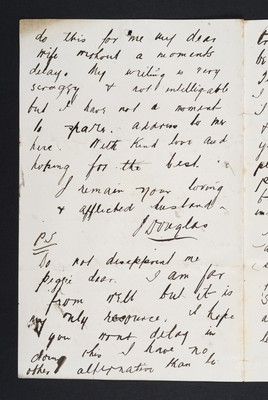 do this for me my dear
wife without a moments
delay. My writing is very
scraggy & not intelligable
but I have not a moment
to spare. address to me
here. With kind love and
hoping for the best
I remain your loving
& afflicted husband
J Douglas
P.S
Do not disappoint me
Peggie dear. I am far
from well but it is
my only resource. I hope
you wont delay in
doing this I have no
other alternative than to